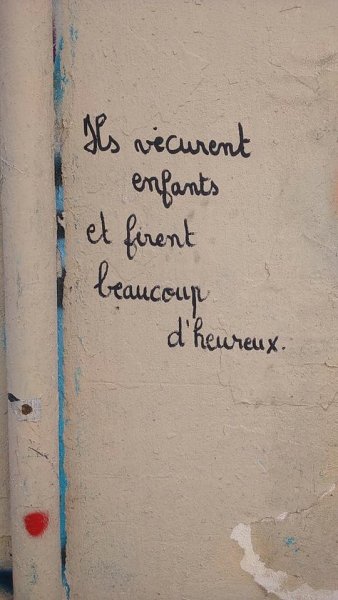 Ils vécurent
enfants
et firent
beaucoup
d'heureux.